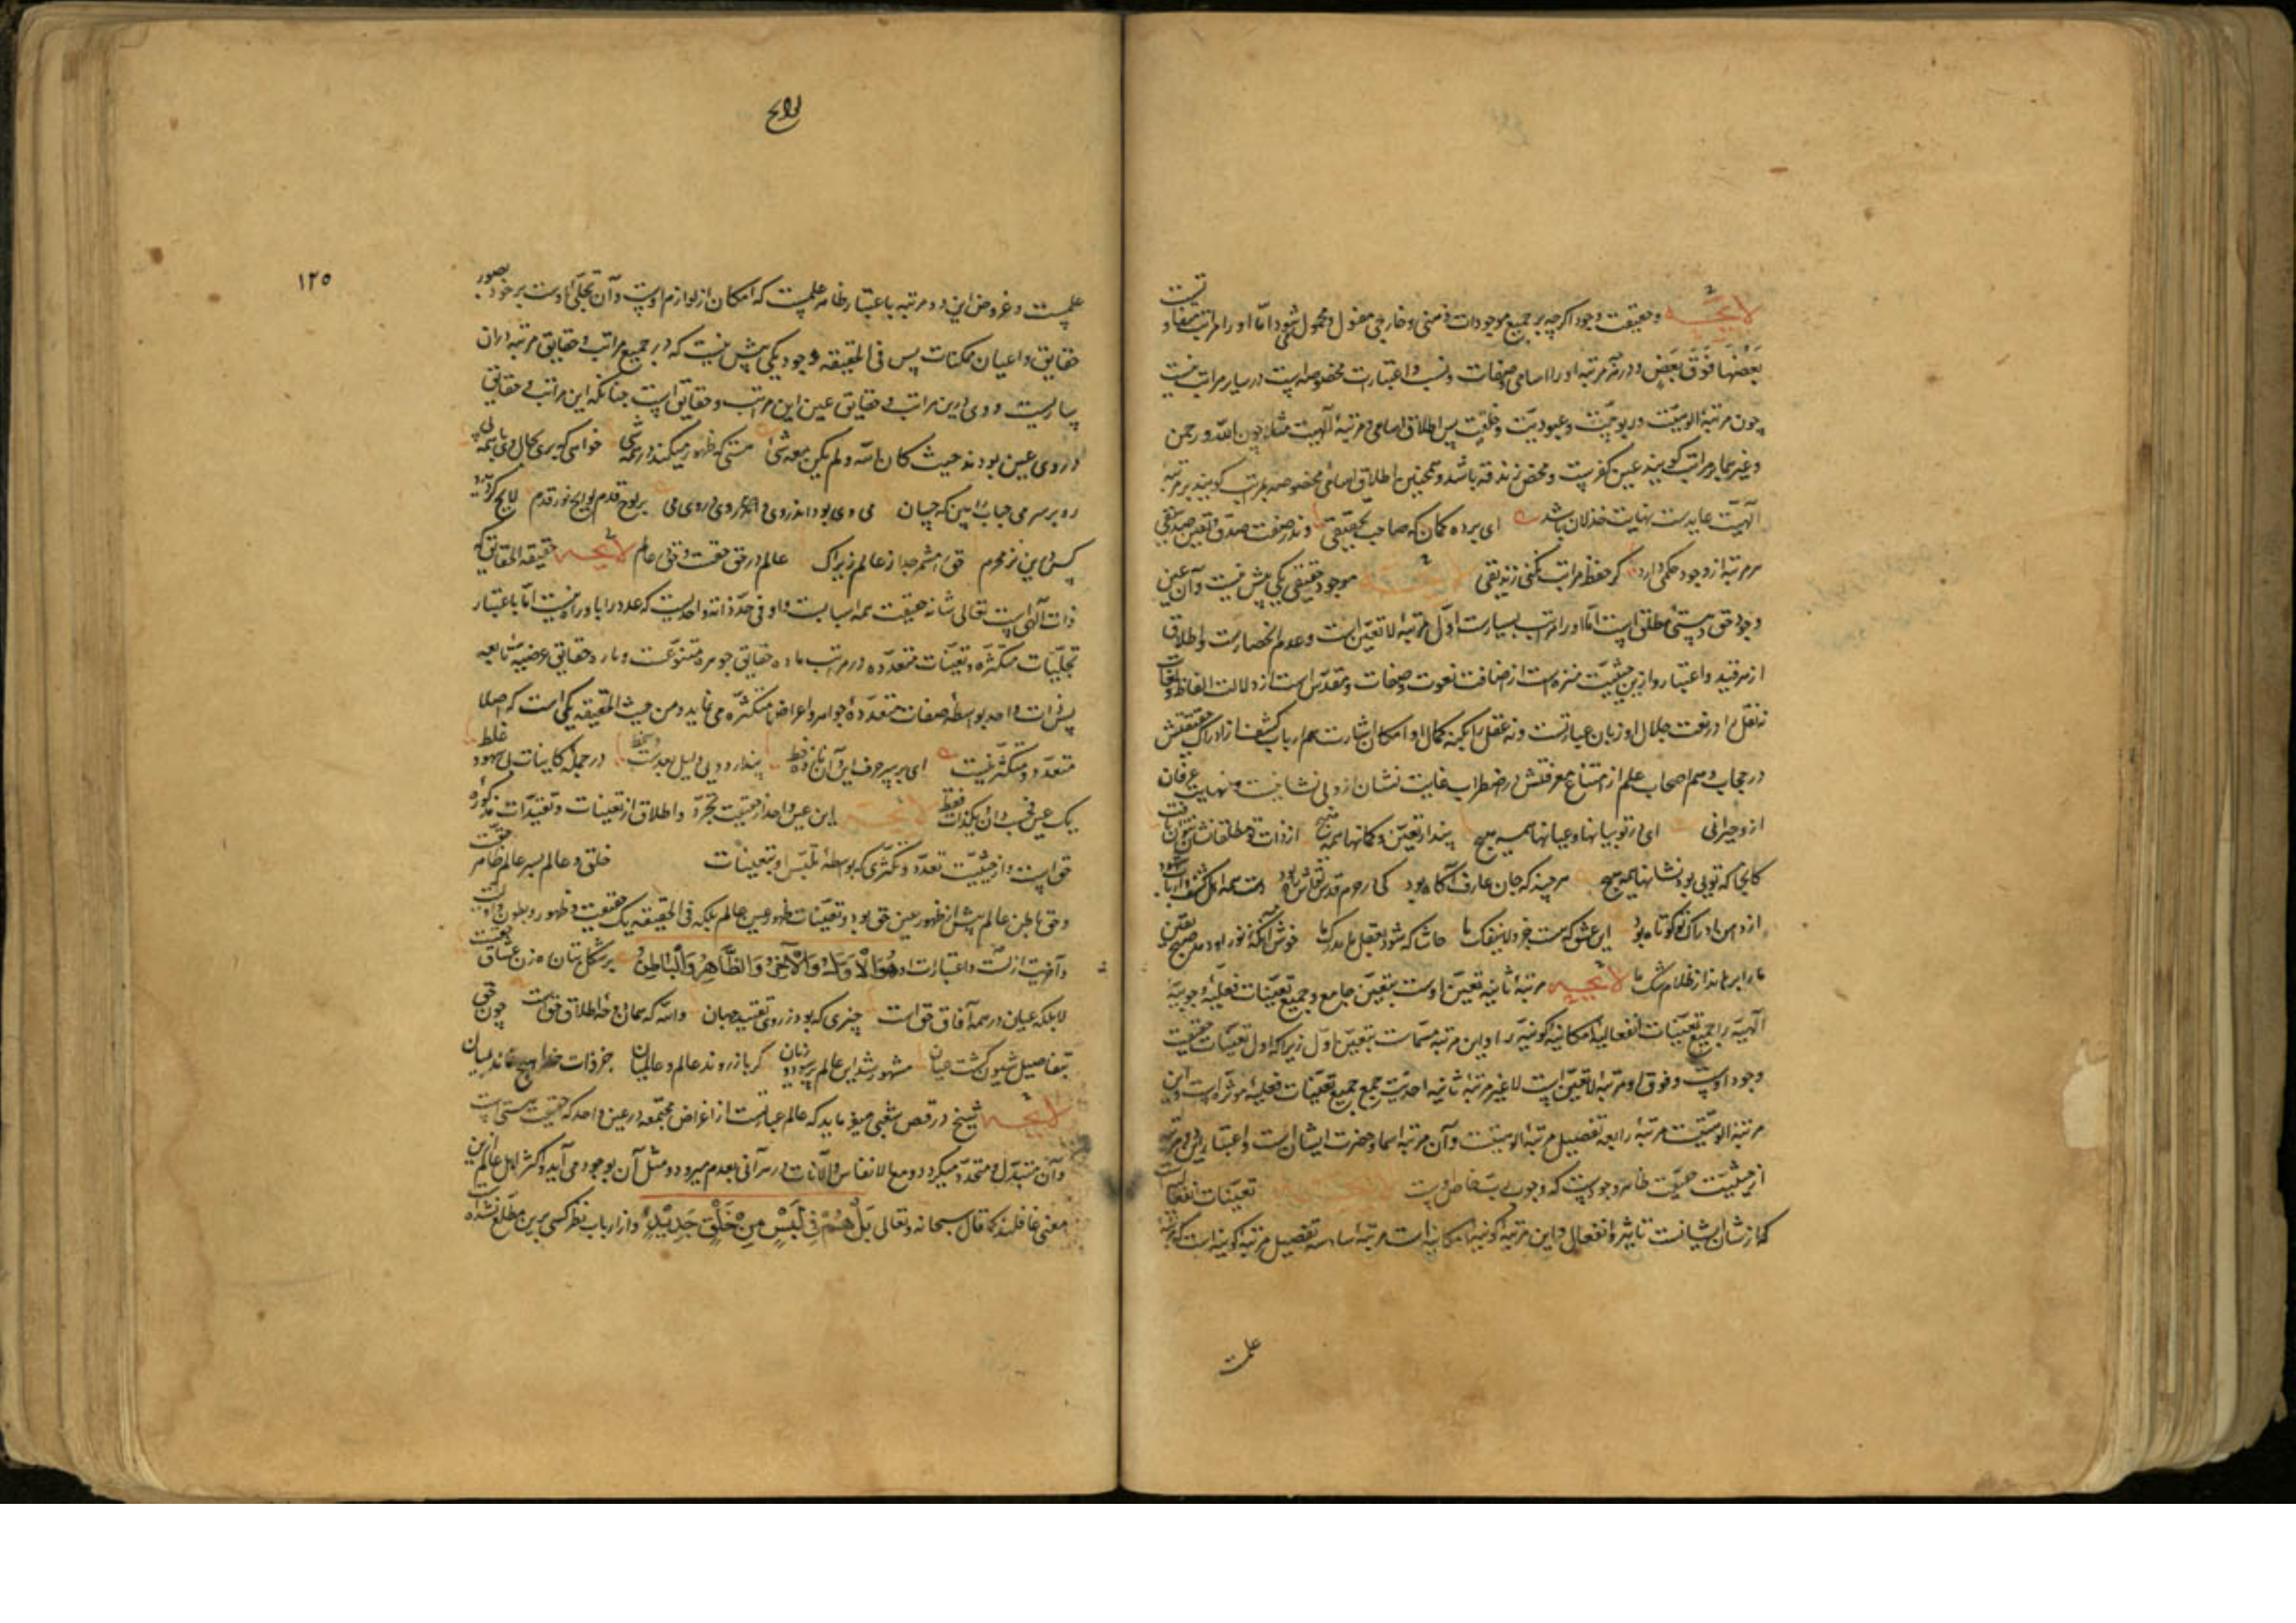 لایحه و حقیقت وجود اگرچه بر جمیع موجودات ذهنی و خارجی مقول و محمول میشود اما او را مراتب متفاوتست
بَعْضُهَا فَوْقَ بَعْضٍ و در هر مرتبه او را اسامی و صفات و نسب و اعتبارات مخصوصه است در سایر مراتب نیست
چون مرتبهٔ الوهیّت و ربوبیّت و عبودیّت و خلقیّت پس اطلاق اسامی مرتبهٔ آلهیت مثلا چون الله و رحمن
و غیرهما بر مراتب کونیه عین کفرست و محض زندقه باشد و همچنین اطلاق اسامی مخصوصه بمراتب کونیه بر مرتبهٔ
آلهیّت غایت نهایت خذلان باشد ای برده گمان که صاحب تحقیقی وندر صفت صدق و یقین صدیقی
هر مرتبه از وجود حکمی دارد گر حفظ مراتب نکنی زندیقی لایحه موجود حقیقی یکی بیش نیست و آن عین
وجود حق و هستی مطلق است اما او را مراتب بسیارست اوّل مرتبهٔ لا تعیّن است و عدم انحصارست و اطلاق
از هر قید و اعتبار و ازین حیثیّت منزه است از اضافت نعوت و صفات و مقدّس است از دلالت الفاظ و لغات
نه نقل را در نعت جلال او زبان عبارتست و نه عقل را بکنه کمال او امکان اشارت هم ارباب کشف از ادراک حقیقتش
در حجاب و هم اصحاب علم از امتناع معرفتش در اضطراب غایت نشان ازو بی نشانیست و نهایت عرفان
ازو حیرانی ای در تو بیانها و عیانها همه هیچ پندار تعیّن و گمانها همه هیچ از ذات تو مطلقا نشان نتوان یافت
کانجا که تویی بود نشانها همه هیچ هر چند که جان عارف آگاه بود کی در حرم قدس تواش راه بود دست همه اهل کشف و ارباب شهود
از دامن ادراک تو کوتاه بود این عشق که هست جزو لاینفک ما حاشا که شود بعقل ما مدرک ما خوش آنکه ز نور او دمد صبح یقین
ما را برهاند از ظلام شک ما لایحه مرتبهٔ ثانیه تعیّن اوست بتعیّن جامع مر جمیع تعیّنات فعلیّه وجوبیّه
آلهیّه را و جمیع تعیّنات انفعالیهٔ امکانیهٔ کونیّه را و این مرتبه مسمّاست بتعیّن اول زیرا که اول تعیّنات حقیقت
وجود اوست و فوق او مرتبهٔ لا تعیّن است لا غیر مرتبهٔ ثالثه احدیّت جمع جمیع تعیّنات فعلیهٔ موثره است و این
مرتبهٔ الوهیّت است مرتبهٔ رابعه تفصیل مرتبهٔ الوهیّتست و آن مرتبهٔ اسما و حضرات ایشانست و اعتبار این دو مرتبه
از حیثیّت ظاهر وجودست که وجوب وصف خاص اوست تعیّنات انفعالیه است
که از شان ایشانست تاثر و انفعال و این مرتبهٔ کونیهٔ امکانیه است مرتبهٔ سادسه تفصیل مرتبهٔ کونیه است که مرتبهٔ
لوایح
١٢٥
علمست و عروض این دو مرتبه باعتبار ظاهر علمست که امکان از لوازم اوست و آن تجلّی اوست بر خود بصور
حقایق و اعیان ممکنات پس فی الحقیقه وجود یکی بیش نیست که در جمیع مراتب و حقایق مرتبه در آن
ساریست و وی درین مراتب و حقایق عین این مراتب و حقایق است چنانکه این مراتب و حقایق
در وی عین وی بودند حیث کان الله و لم یکن معه شئ هستی که ظهور میکند در همه شی خواهی که بری بحال وی با همه پی
رو بر سر می حباب را بین که چسان می وی بود اندر وی و وی در می بر لوح قدم لوایح نور قدم لایح گردید
کس درین سر محرم حق را مشمر جدا ز عالم زیراک عالم در حق حقست و حق در عالم لایحه حقیقة الحقایق که
ذات آلهی است تعالی شانه حقیقت همه اشیاست و او فی حدّ ذاته واحدیست که عدد را باو راه نیست امّا باعتبار
تجلّیّات متکثّره و تعیّنات متعدّده در مراتب تاره حقایق جوهریه متبوعه است و تاره حقایق عرضیهٔ تابعه
پس ذات واحد بواسطهٔ صفات متعدّده جواهر و اعراض متکثّره می نماید و من حیث الحقیقه یکی است که اصلا
متعدّد و متکثّر نیست ای بر سر حرف این و آن نازده خط پندار دویی دلیل بعدست و سخط در جملهٔ کاینات بی سهو و غلط
یک عین فحسب دان و یک ذات فقط لایحه این عین واحد از حیثیّت تجرّد و اطلاق از تعیّنات و تقیّدات مذکوره
حق است و از حیثیّت تعدّد و تکثّری که بواسطهٔ تلبّس او بتعیّنات خلق و عالم پس عالم ظاهر
و حق باطن عالم پیش از ظهور عین حق بود و تعیّنات ظهور عین عالم بلکه فی الحقیقه یک حقیقت و ظهور و بطون و اوّلیّت
و آخریّت از نسب و اعتبارات او هُوَ الْأَوَّلُ وَالْآخِرُ وَالظَّاهِرُ وَالْبَاطِنُ بر شکل بتان رهزن عشّاق حقست
لا بلکه عیان در همه آفاق حق است چیزی که بود ز روی تقیید جهان والله که همان ز وجه اطلاق حق است چون حق
بتفاصیل شیون گشت عیان مشهود شد این عالم پر سود و زیان گر باز روند عالم و عالمیان
لایحه شیخ در فص شعیبی میفرماید که عالم عبارتست از اعراض مجتمعه در عین واحد که حقیقت هستی است
و آن متبدّل و متجدّد میگردد مع الانفاس والآنات در هر آنی بعدم میرود و مثل آن بوجود می آید و اکثر اهل عالم ازین
معنی غافلند کما قال سبحانه و تعالی بَلْ هُمْ فِي لَبْسٍ مِنْ خَلْقٍ جَدِيدٍ و از ارباب نظر کسی برین مطّلع نشده
علمست